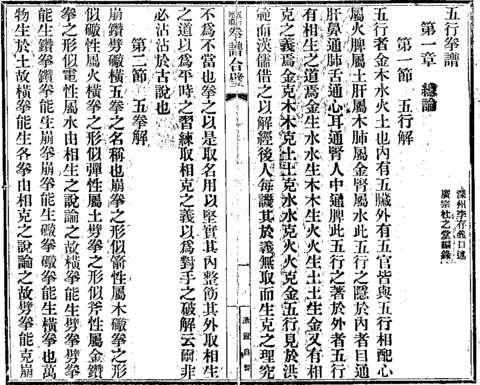 五行拳譜
第一章 總論
深州李存義口述
廣宗杜之堂編錄
第一節 五行解
五行者金木水火土也內有五臟外有五官皆與五行相配心
屬火脾屬土肝屬木肺屬金腎屬水此五行之隱於內者目通
肝鼻通肺舌通心耳通腎人中通脾此五行之著於外者五行
有相生之道焉金生水水生木木生火火生土土生金又有相
克之義焉金克木木克土土克水水克火火克金五行見於洪
範而漢儒借之以解經後人每譏其於義無取而生克之理究
拳譜合璧
不爲不當也拳之以是取名用以堅實其內整飭其外取相生
之道以爲平時之習練取相克之義以爲對手之破解云爾非
必沾沾於古說也
第二節 五拳解
崩鑽劈礮橫五拳之名稱也崩拳之形似箭性屬木礮拳之形
似礮性屬火橫拳之形似彈性屬土劈拳之形似斧性屬金鑽
拳之形似電性屬水由相生之說論之故橫拳能生劈拳劈拳
能生鑽拳鑽拳能生崩拳崩拳能生礮拳礮拳能生橫拳也萬
物生於土故橫拳能生各拳由相克之說論之故劈拳能克崩